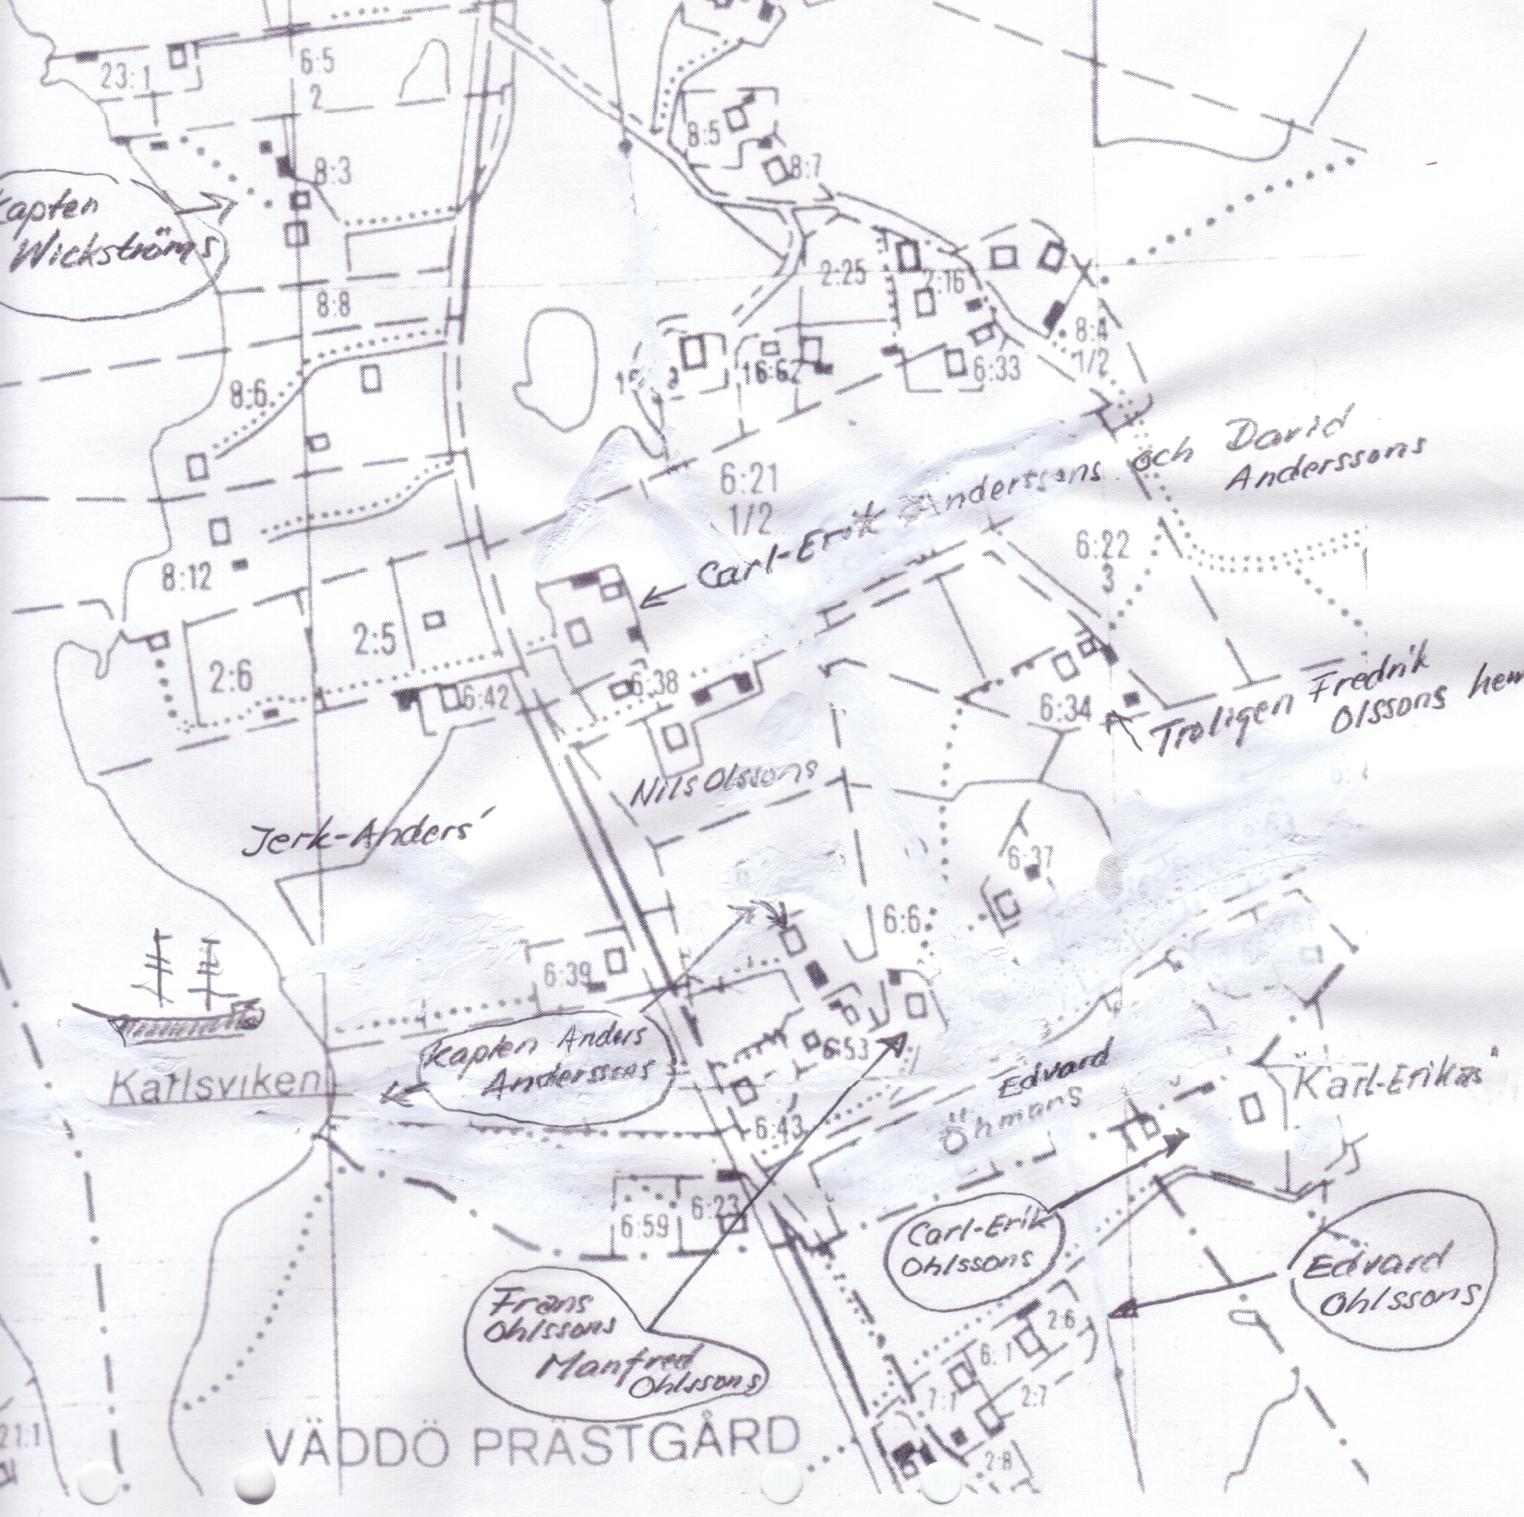 23:1
6:5
2
8:5
8:7
8:3
Kapten
Wickströms
2:25
2:16
8:8
8:4
1/2
6:33
16:62
8:6
och David
Anderssons
6:21
1/2
Carl-Erik Anderssons
6:22
3
8:12
2:5
2:6
6:42
6:38
6:34
Troligen Fredrik
Olssons hem
Nils Olssons
Jerk-Anders'
6:37
6:6
6:39
Kapten Anders
Anderssons
6:53
Karlsviken
Edvard
Öhmans
Karl-Erikas
6:43
6:59
6:23
Carl-Erik
Ohlssons
Edvard
Ohlssons
Frans
Ohlssons
Manfred
Ohlssons
2:6
6:1
7:1
2:7
2:8
21:1
VÄDDÖ PRÄSTGÅRD